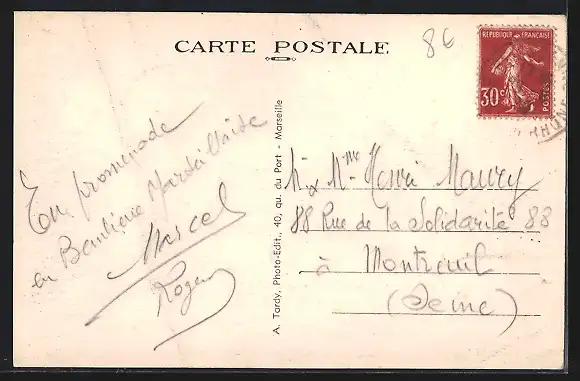 CARTE POSTALE
86
REPUBLIQUE FRANÇAISE
30c
POSTES
RHÔNE
En promenade
en Banlieue Marseillaise
Marcel
Roger
A. Tardy, Photo-Edit., 40, qu. du Port - Marseille
Mr & Mme Henri Maury
88 Rue de la Solidarité 88
à Montreuil
(Seine)